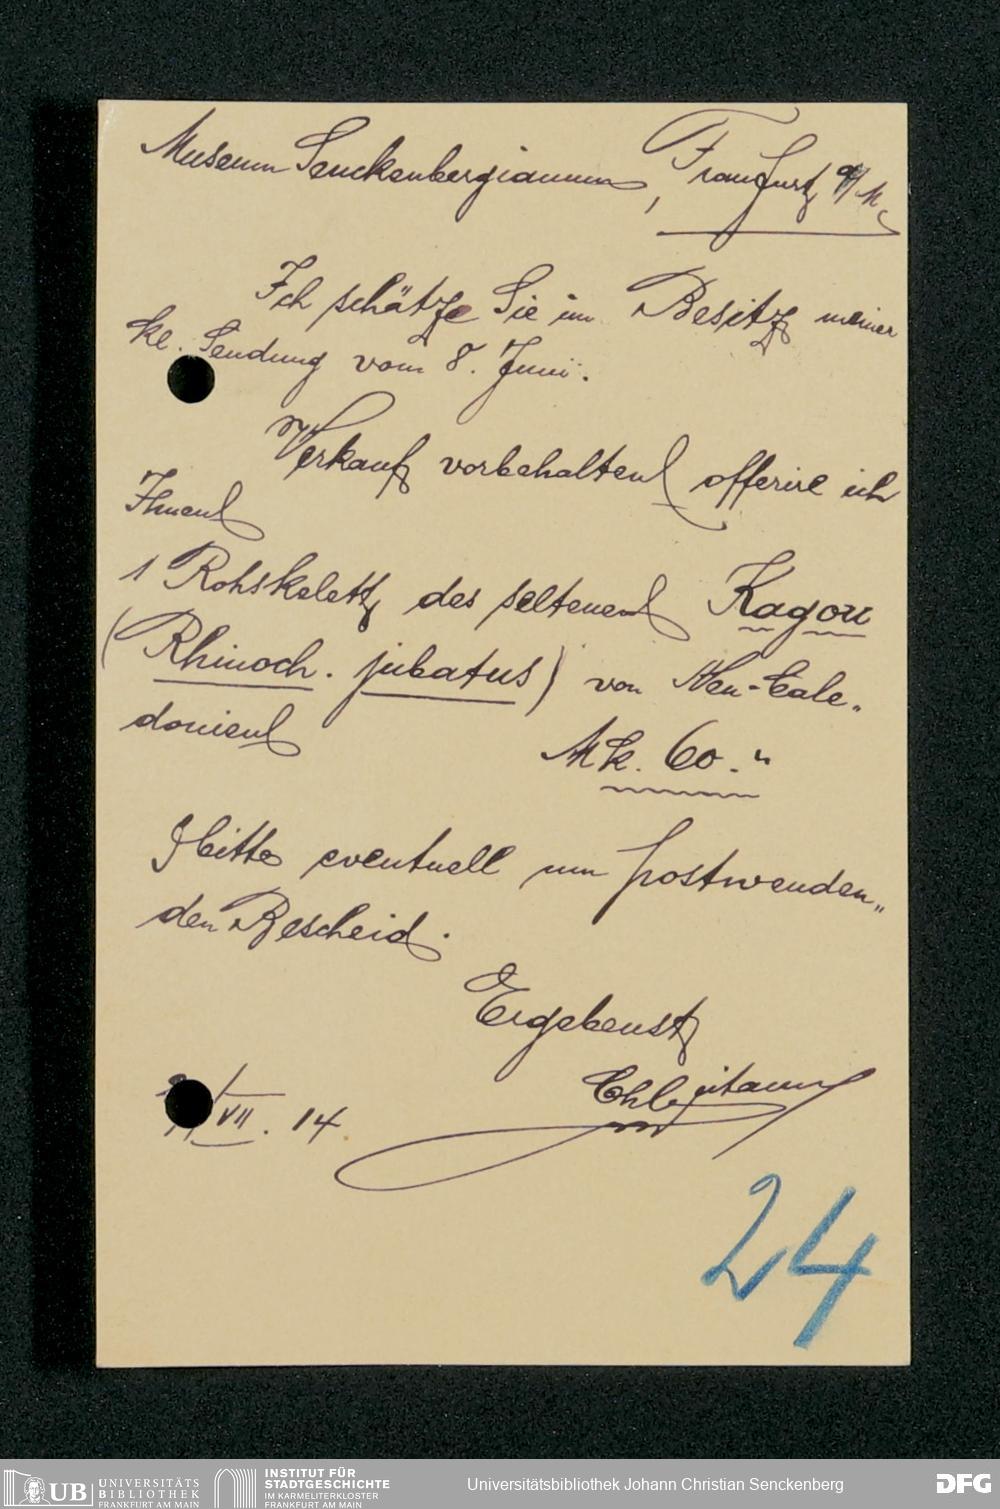 Museum Senckenbergianum, Frankfurt a/M.
Ich schätze Sie im Besitz meiner
kl. Sendung vom 8. Juni.
Verkauf vorbehalten offerire ich
Ihnen
1 Rohskelett des seltenen Kagou
(Rhinoch. jubatus) von Neu-Cale„
donien
Mk. 60.“
Ich bitte eventuell um postwenden„
den Bescheid.
Ergebenst
VII. 14
24
UB UNIVERSITÄTS
BIBLIOTHEK
FRANKFURT AM MAIN
INSTITUT FÜR
STADTGESCHICHTE
IM KARMELITERKLOSTER
FRANKFURT AM MAIN
Universitätsbibliothek Johann Christian Senckenberg
DFG